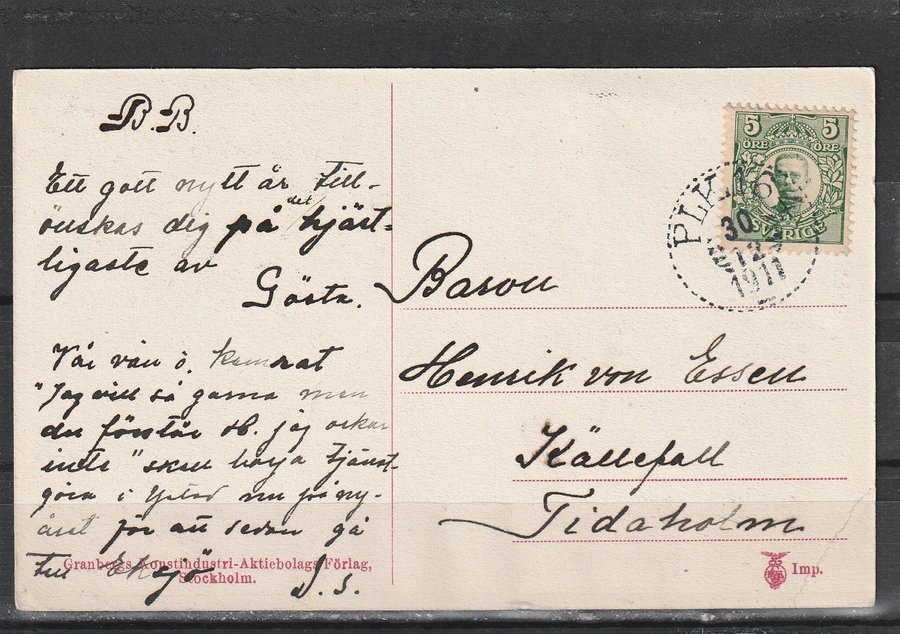 B.B.
Ett gott nytt år till-
önskas dig på det hjärt-
ligaste av
Gösta.
Vår vän ö. kamrat
"Jag vill så gärna men
du förstår H. jag orkar
inte" skall börja tjänst-
göra i Ystad nu på ny-
året för att sedan gå
till Eksjö
D.S.
Granbergs Konstindustri-Aktiebolags Förlag,
Stockholm.
5 5
ÖRE ÖRE
SVERIGE
PLK
30
12
1911
Baron
Henrik von Essen
Källefall
Tidaholm
Imp.